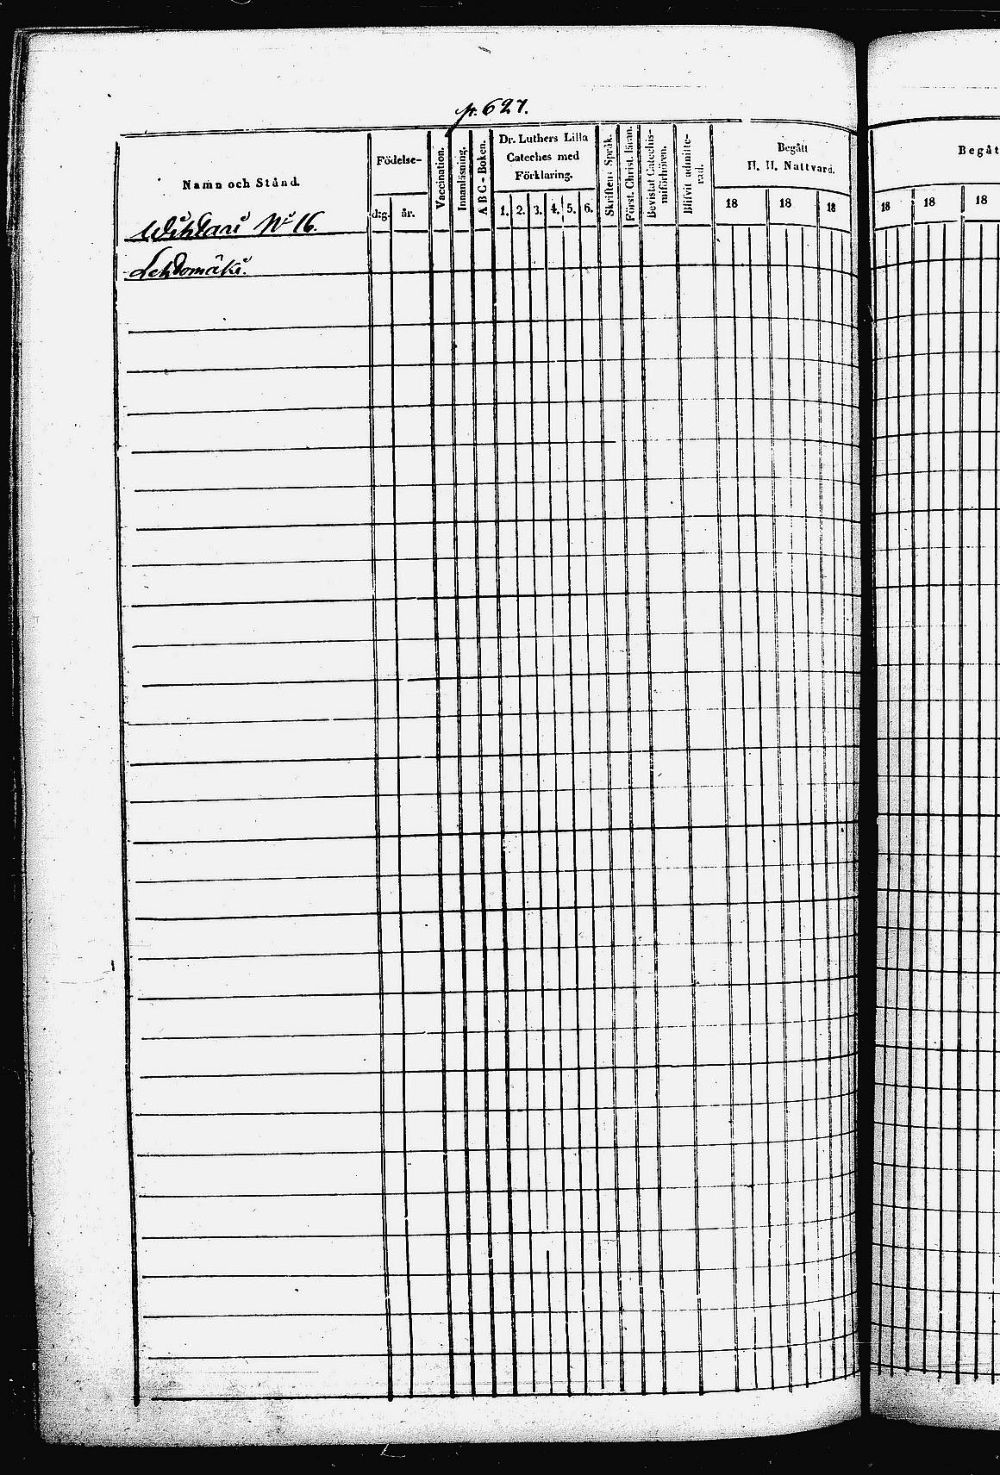 p. 627.
Namn och Stånd.
Födelse-
dag.
år.
Vaccination.
Innanläsning.
A B C - Boken.
Dr. Luthers Lilla
Cateches med
Förklaring.
1. 2. 3. 4. 5. 6.
Skriftens Språk.
Först. Christ. läran.
Bevistat Catechis-
miförhören.
Blifvit admitte-
rad.
Begått
H. H. Nattvard.
18 18 18
Begåt
18 18 18
No 16.
Lehtomäki.